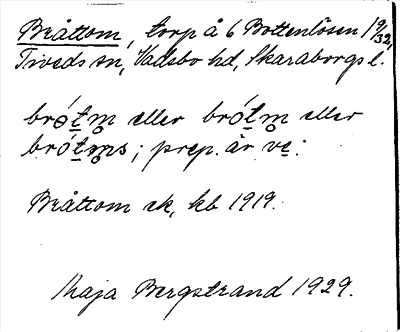 Bråttom, torp å 6 Bottenlösen 19/32,
Tiveds sn, Vadsbo hd, Skaraborgs l.
brǫ́t̲m̥ eller brót̲m̥ eller
brót̲m̥s; prep. är ve̲:
Bråttom ek, kb 1919.
Maja Bergstrand 1929.